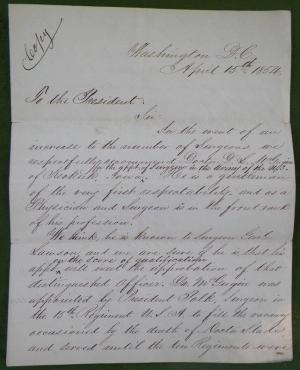 Copy
Washington D.C.
April 15th 1854.
To the President.
Sir
In the event of an
increase to the number of Surgeons we
respectfully recommend Doctor D. L. McGugin
for the appt. of Surgeon in the Army of the U.S.
of Keokuk, Iowa. He is a gentleman
of the very first respectability and as a
Physician and Surgeon is in the front rank
of his profession.
We think he is known to Surgeon Genl.
Lawson, and we are sure if he is that his
on the score of qualification
appt. will meet the approbation of that
distinguished Officer. Dr. McGugin was
appointed by President Polk, Surgeon in
the 15th Regiment U.S.A to fill the vacancy
occasioned by the death of Doctor
and served until the ten Regiments were